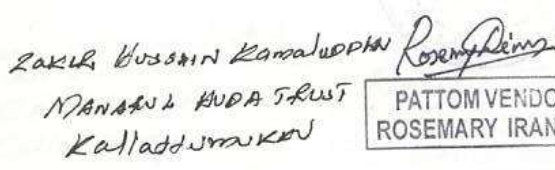 Zakir Hussain Kamaluddin
Manarul Huda Trust
Kalladdumukku
PATTOM VENDO
ROSEMARY IRAN